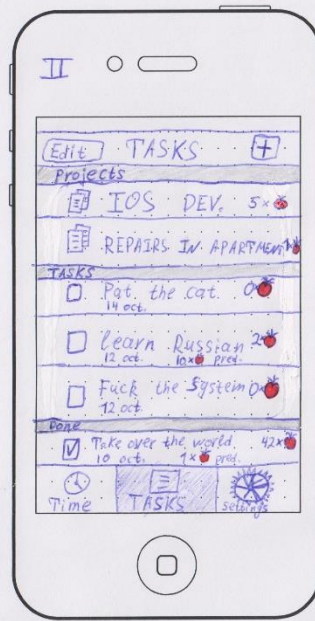 II
Edit TASKS +
Projects
IOS DEV. 5×
REPAIRS IN APARTMENT 1×
TASKS
Pat the cat. 0×
14 oct.
learn Russian 2×
12 oct. 10× pred.
Fuck the System 0×
12 oct.
Done
Take over the world. 42×
10 oct. 1× pred.
Time TASKS Settings